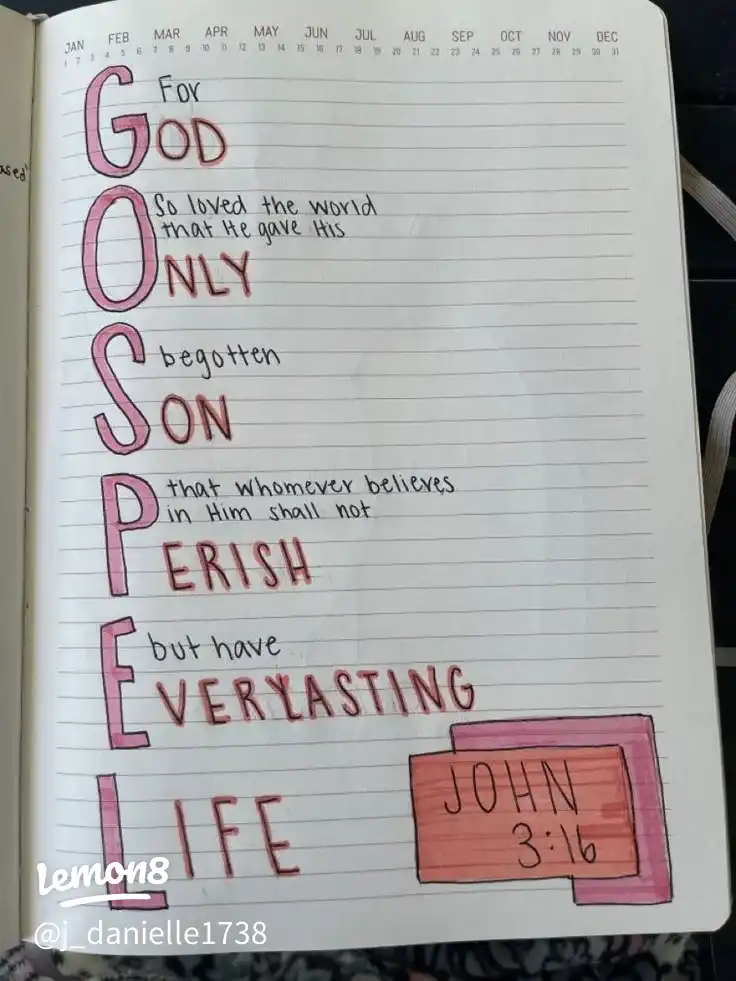 JAN FEB MAR APR MAY JUN JUL AUG SEP OCT NOV DEC
1 2 3 4 5 6 7 8 9 10 11 12 13 14 15 16 17 18 19 20 21 22 23 24 25 26 27 28 29 30 31
For
GOD
So loved the world
that He gave His
ONLY
begotten
SON
that whomever believes
in Him shall not
PERISH
but have
EVERYLASTING
LIFE
JOHN
3:16
lemon8
@j_danielle1738